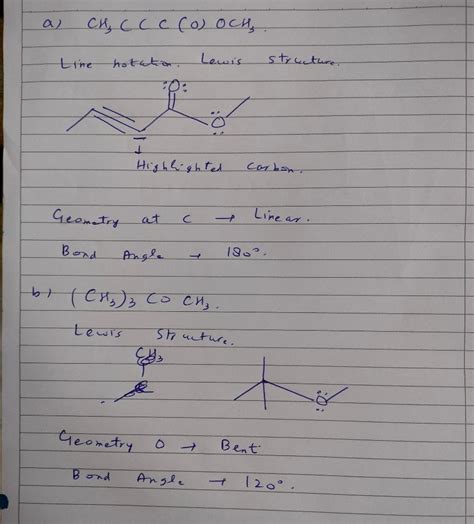 a) CH3 C C C (O) OCH3.
Line notation. Lewis structure.
:O:
O
Highlighted carbon.
Geometry at C → Linear.
Bond Angle → 180°.
b) (CH3)3 CO CH3.
Lewis Structure.
CH3
O
Geometry O → Bent
Bond Angle → 120°.